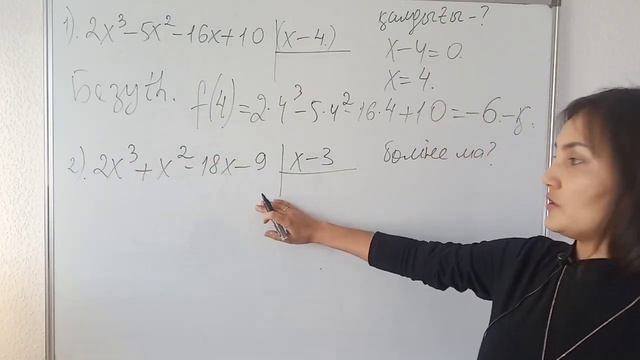 1). 2x³-5x²-16x+10 | (x-4.) қалдығы-?
x-4=0.
x=4.
Безу th. f(4)=2·4³-5·4²-16·4+10=-6.-қ.
2). 2x³+x²-18x-9 | x-3 бөліне ма?